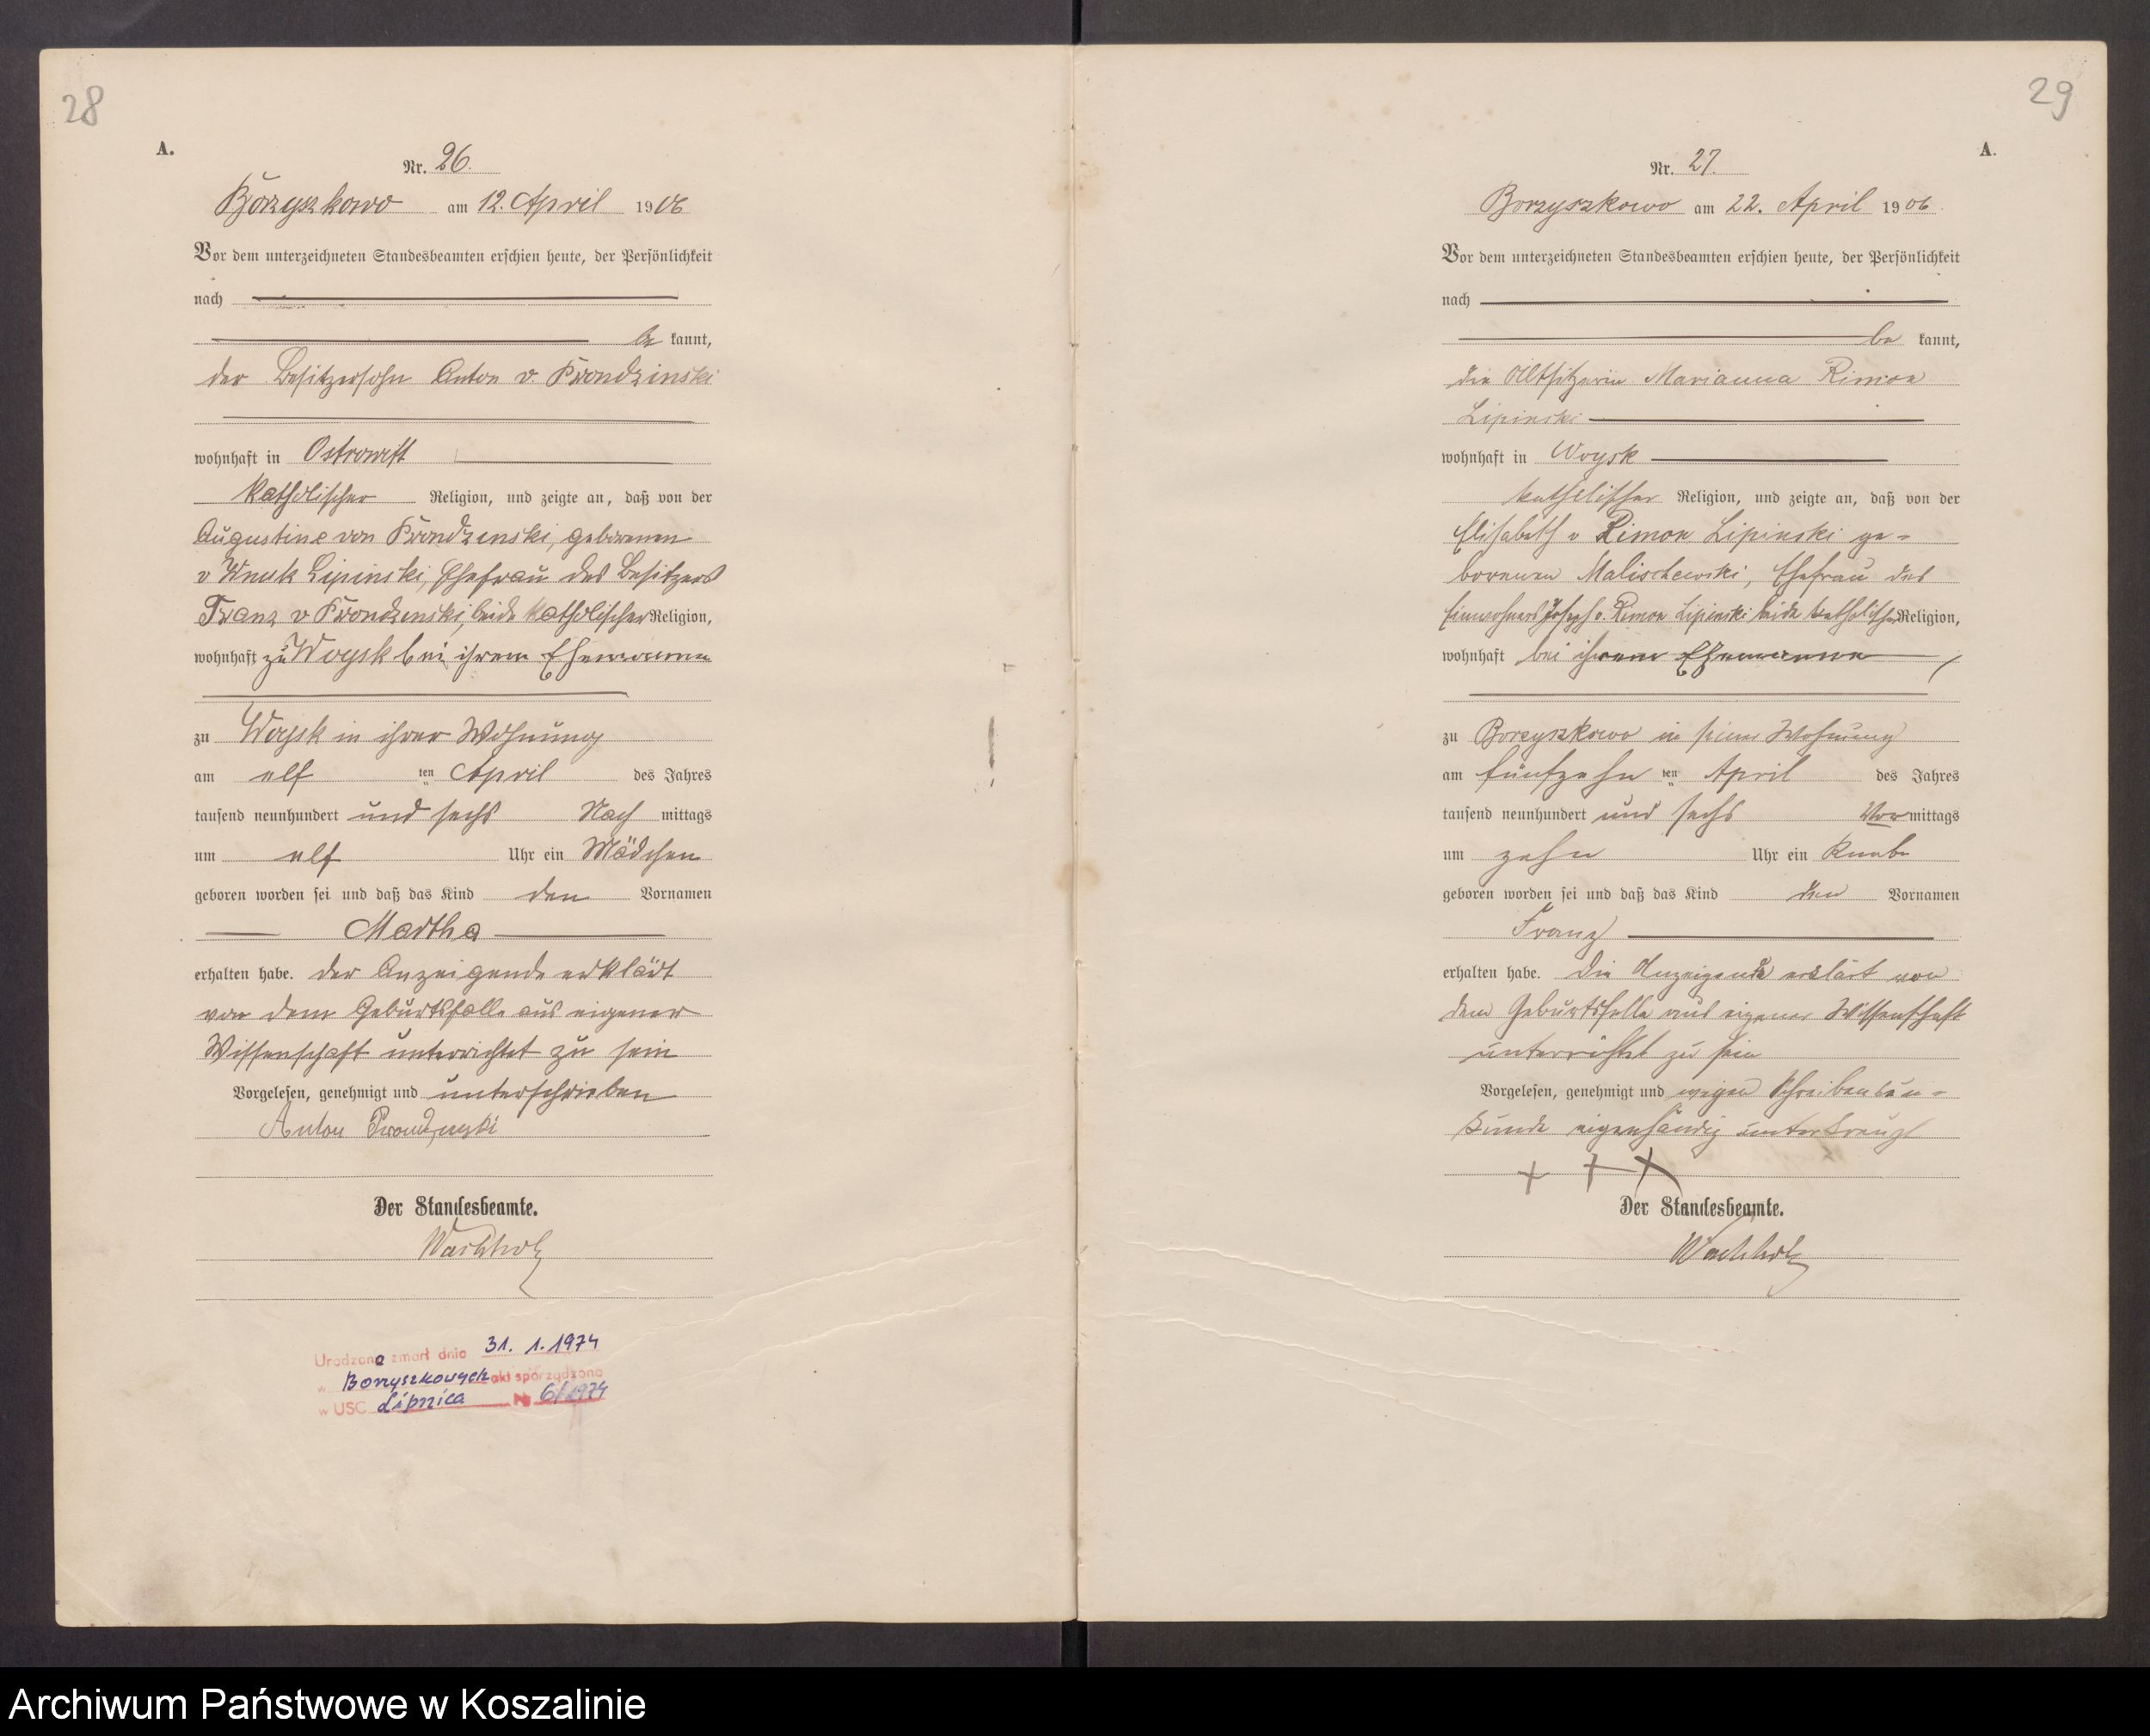 28
A.
Nr. 26.
Borzyszkowo am 12. April 1906
Vor dem unterzeichneten Standesbeamten erschien heute, der Persönlichkeit
nach
be kannt,
der Besitzersohn Anton v. Prondzinski
wohnhaft in Ostrowitt
katholischer Religion, und zeigte an, daß von der
Augustine von Prondzinski, geborenen
v Wnuk Lipinski, Ehefrau des Besitzers
Franz v Prondzenski, beide katholischer Religion,
wohnhaft zu Woysk bei ihrem Ehemanne
zu Woysk in ihrer Wohnung
am elf ten April des Jahres
tausend neunhundert und sechs Nach mittags
um elf Uhr ein Mädchen
geboren worden sei und daß das Kind den Vornamen
Martha
erhalten habe. der Anzeigende erklärt
von dem Geburtsfalle aus eigener
Wissenschaft unterrichtet zu sein
Vorgelesen, genehmigt und unterschrieben
Anton Prondzynski
Der Standesbeamte.
Wachholz
Urodzona zmarł dnia 31. 1. 1974
w Borzyszkowych akt sporządzono
w USC Lipnica Nr 6/1974
29
A.
Nr. 27.
Borzyszkowo am 22. April 1906
Vor dem unterzeichneten Standesbeamten erschien heute, der Persönlichkeit
nach
be kannt,
die Altsitzerin Marianna Rimon
Lipinski
wohnhaft in Woysk
katholischer Religion, und zeigte an, daß von der
Elisabeth v Rimon Lipinski ge-
borenen Malischewski, Ehefrau des
Einwohners Joseph v. Rimon Lipinski beide katholischer Religion,
wohnhaft bei ihrem Ehemanne
zu Borzyszkowo in seiner Wohnung
am fünfzehn ten April des Jahres
tausend neunhundert und sechs Vor mittags
um zehn Uhr ein Knabe
geboren worden sei und daß das Kind den Vornamen
Franz
erhalten habe. Die Anzeigende erklärt von
dem Geburtsfalle aus eigener Wissenschaft
unterrichtet zu sein
Vorgelesen, genehmigt und wegen Schreibenun-
kunde eigenhändig unterkreuzt
+ + +
Der Standesbeamte.
Wachholz
Archiwum Państwowe w Koszalinie